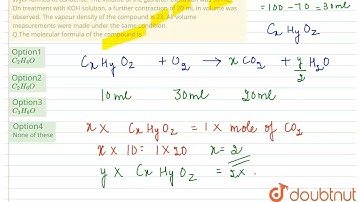 H2O formed to condense. The volume of the gas after explosion was 90 mL.
On treatment with KOH solution, a further contraction of 20 mL in volume
was observed. The vapour density of the compound is 23. All volume
measurements were made under the same condition.
Q. The molecular formula of the compound is
=100-70=30ml
CxHyO2
Option1
C2H6O
Option2
C3H6O
Option3
C2H4O
Option4
None of these
CxHyO2 + O2 → x CO2 + y/2 H2O
10ml 30ml 20ml
x × CxHyO2 = 1 × mole of CO2
x × 10 = 1 × 20 x = 2
y × CxHyO2 = 2 ×
doubtnut